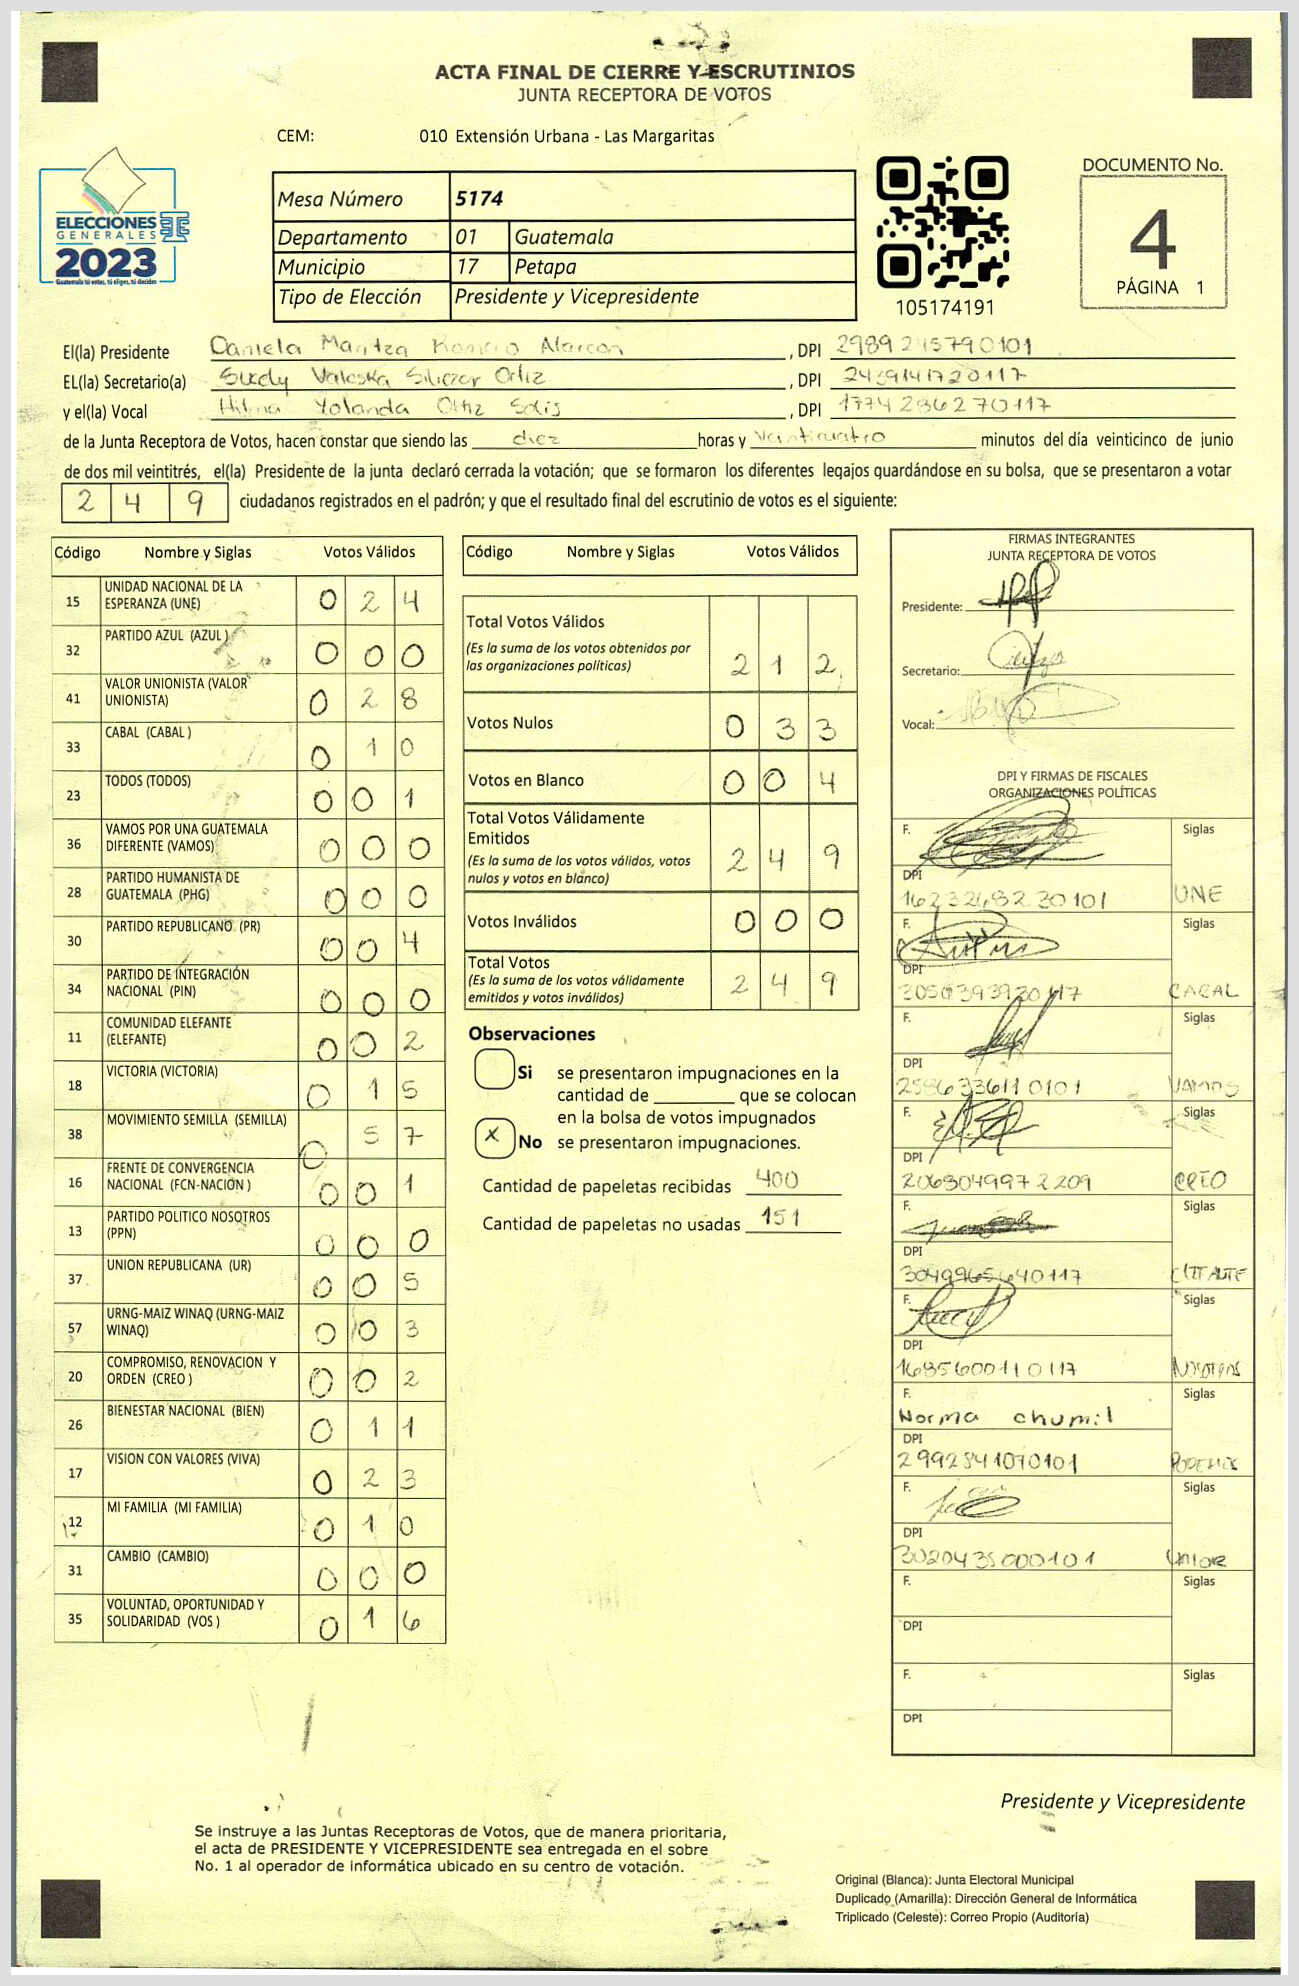 ACTA FINAL DE CIERRE Y ESCRUTINIOS
JUNTA RECEPTORA DE VOTOS
CEM: 010 Extensión Urbana - Las Margaritas
ELECCIONES
GENERALES
2023
Guatemala tú votas, tú eliges, tú decides
Mesa Número 5174
Departamento 01 Guatemala
Municipio 17 Petapa
Tipo de Elección Presidente y Vicepresidente
105174191
DOCUMENTO No.
4
PÁGINA 1
El(la) Presidente Daniela Maritza Romero Alarcon , DPI 2989245790101
EL(la) Secretario(a) Valeska Ortiz , DPI 2459141720117
y el(la) Vocal Hilma Yolanda Ortiz Solis , DPI 1774286270117
de la Junta Receptora de Votos, hacen constar que siendo las diez horas y veinticuatro minutos del día veinticinco de junio
de dos mil veintitrés, el(la) Presidente de la junta declaró cerrada la votación; que se formaron los diferentes legajos quardándose en su bolsa, que se presentaron a votar
2 4 9 ciudadanos registrados en el padrón; y que el resultado final del escrutinio de votos es el siguiente:
Código Nombre y Siglas Votos Válidos
15 UNIDAD NACIONAL DE LA
ESPERANZA (UNE) 0 2 4
32 PARTIDO AZUL (AZUL ) 0 0 0
41 VALOR UNIONISTA (VALOR
UNIONISTA) 0 2 8
33 CABAL (CABAL ) 0 1 0
23 TODOS (TODOS) 0 0 1
36 VAMOS POR UNA GUATEMALA
DIFERENTE (VAMOS) 0 0 0
28 PARTIDO HUMANISTA DE
GUATEMALA (PHG) 0 0 0
30 PARTIDO REPUBLICANO (PR) 0 0 4
34 PARTIDO DE INTEGRACIÓN
NACIONAL (PIN) 0 0 0
11 COMUNIDAD ELEFANTE
(ELEFANTE) 0 0 2
18 VICTORIA (VICTORIA) 0 1 5
38 MOVIMIENTO SEMILLA (SEMILLA) 0 5 7
16 FRENTE DE CONVERGENCIA
NACIONAL (FCN-NACION ) 0 0 1
13 PARTIDO POLITICO NOSOTROS
(PPN) 0 0 0
37 UNION REPUBLICANA (UR) 0 0 5
57 URNG-MAIZ WINAQ (URNG-MAIZ
WINAQ) 0 0 3
20 COMPROMISO, RENOVACION Y
ORDEN (CREO ) 0 0 2
26 BIENESTAR NACIONAL (BIEN) 0 1 1
17 VISION CON VALORES (VIVA) 0 2 3
12 MI FAMILIA (MI FAMILIA) 0 1 0
31 CAMBIO (CAMBIO) 0 0 0
35 VOLUNTAD, OPORTUNIDAD Y
SOLIDARIDAD (VOS ) 0 1 6
Código Nombre y Siglas Votos Válidos
Total Votos Válidos
(Es la suma de los votos obtenidos por
las organizaciones políticas) 2 1 2
Votos Nulos 0 3 3
Votos en Blanco 0 0 4
Total Votos Válidamente
Emitidos
(Es la suma de los votos válidos, votos
nulos y votos en blanco) 2 4 9
Votos Inválidos 0 0 0
Total Votos
(Es la suma de los votos válidamente
emitidos y votos inválidos) 2 4 9
Observaciones
Si se presentaron impugnaciones en la
cantidad de ________ que se colocan
en la bolsa de votos impugnados
X No se presentaron impugnaciones.
Cantidad de papeletas recibidas 400
Cantidad de papeletas no usadas 151
FIRMAS INTEGRANTES
JUNTA RECEPTORA DE VOTOS
Presidente:
Secretario:
Vocal:
DPI Y FIRMAS DE FISCALES
ORGANIZACIONES POLÍTICAS
F. Siglas
DPI
16232643230101 UNE
F. Siglas
DPI
3050393930117 CABAL
F. Siglas
DPI
2586336110101 VAMOS
F. Siglas
DPI
2063049972209 CREO
F. Siglas
DPI
3049965640117
F. Siglas
DPI
1685600110117 NOSOTROS
F. Siglas
Norma chumil
DPI
2992841070101 PODEMOS
F. Siglas
DPI
3020435000101 VALOR
F. Siglas
DPI
F. Siglas
DPI
Presidente y Vicepresidente
Se instruye a las Juntas Receptoras de Votos, que de manera prioritaria,
el acta de PRESIDENTE Y VICEPRESIDENTE sea entregada en el sobre
No. 1 al operador de informática ubicado en su centro de votación.
Original (Blanca): Junta Electoral Municipal
Duplicado (Amarilla): Dirección General de Informática
Triplicado (Celeste): Correo Propio (Auditoría)